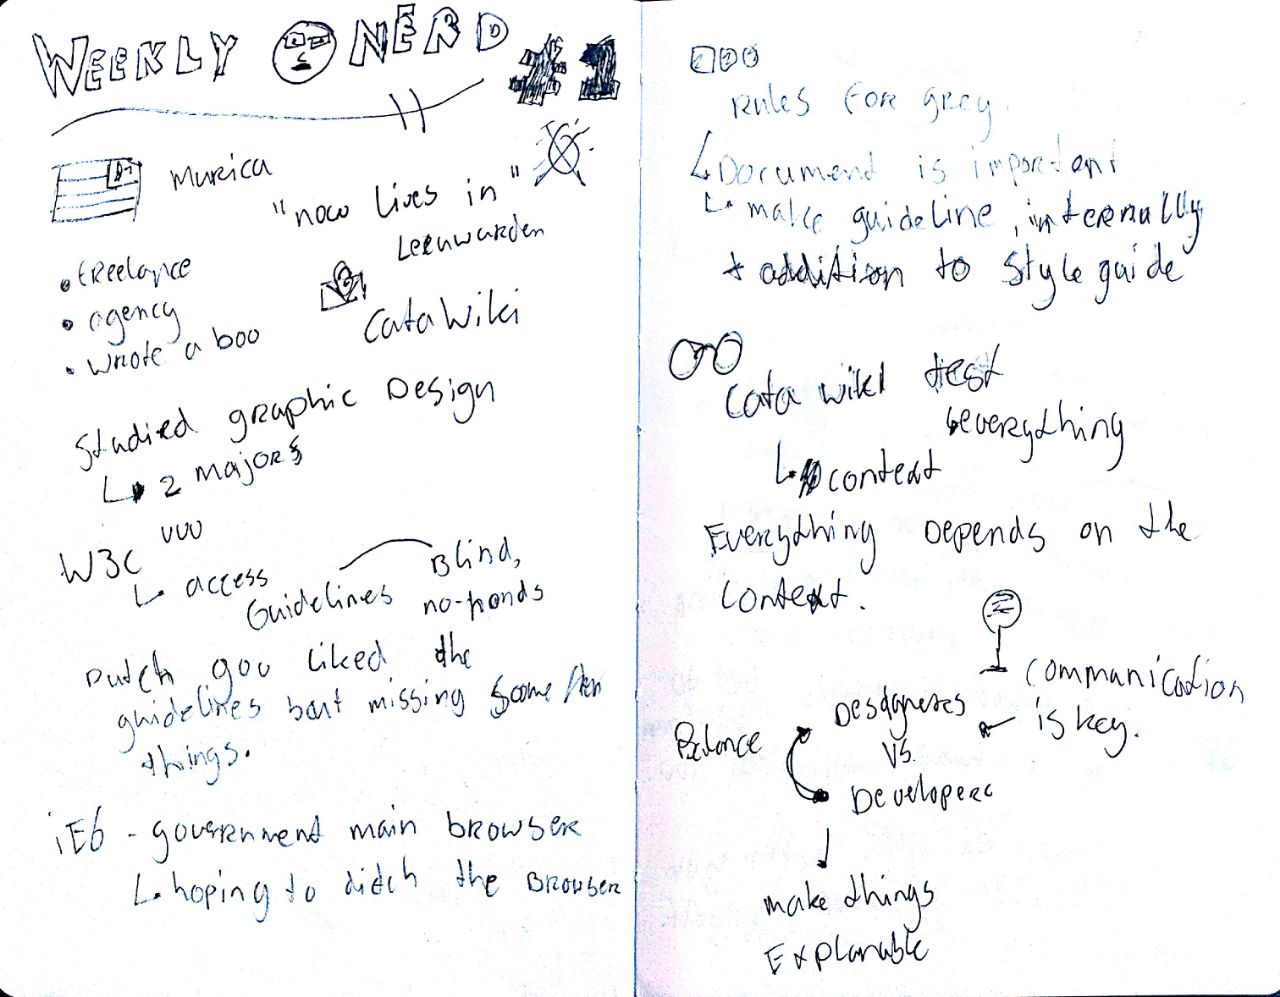 WEEKLY NERD #1
Murica
"now lives in"
Leeuwarden
• freelance
• agency
• wrote a boo
CataWiki
Studied graphic Design
2 majors
W3C
access
Guidelines
Blind,
no-hands
Dutch gov liked the
guidelines but missing some
things.
iE6 - government main browser
hoping to ditch the Browser
Rules for grey.
Document is important
make guideline, internally
+ addition to Style guide
Cata wiki test
everything
context
Everything Depends on the
context.
communication
is key.
Balance
Desagneres
VS.
Developers
make things
Explanable